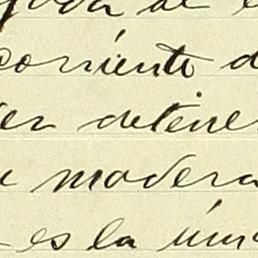 corriente d
er detener
modera
es la úni